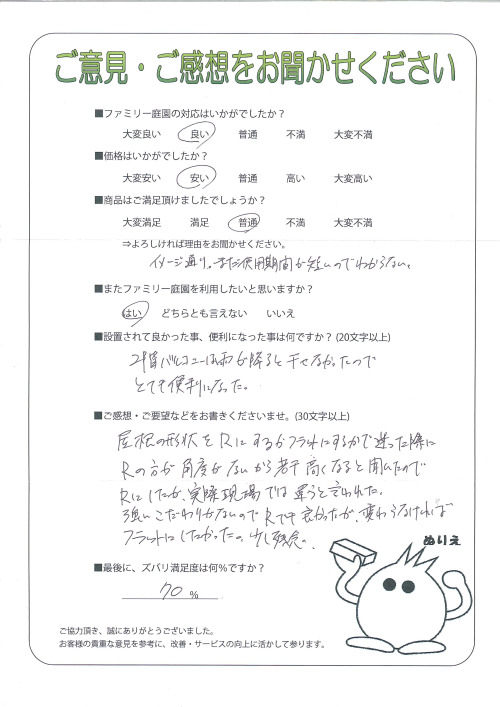 ご意見・ご感想をお聞かせください
■ファミリー庭園の対応はいかがでしたか?
大変良い 良い 普通 不満 大変不満
■価格はいかがでしたか?
大変安い 安い 普通 高い 大変高い
■商品はご満足頂けましたでしょうか?
大変満足 満足 普通 不満 大変不満
⇒よろしければ理由をお聞かせください。
イメージ通り。まだ使用期間が短いのでわからない。
■またファミリー庭園を利用したいと思いますか?
はい どちらとも言えない いいえ
■設置されて良かった事、便利になった事は何ですか?(20文字以上)
2階バルコニーは雨が降ると干せなかったので
とても便利になった。
■ご感想・ご要望などをお書きくださいませ。(30文字以上)
屋根の形状をRにするかフラットにするかで迷った際に
Rの方が角度がないから若干高くなると聞いたので
Rにしたが、実際現場では違うと言われた。
強いこだわりがないのでRでも良かったが、変わらなければ
フラットにしたかった。少し残念。
ぬりえ
■最後に、ズバリ満足度は何%ですか?
70 %
ご協力頂き、誠にありがとうございました。
お客様の貴重な意見を参考に、改善・サービスの向上に活かして参ります。